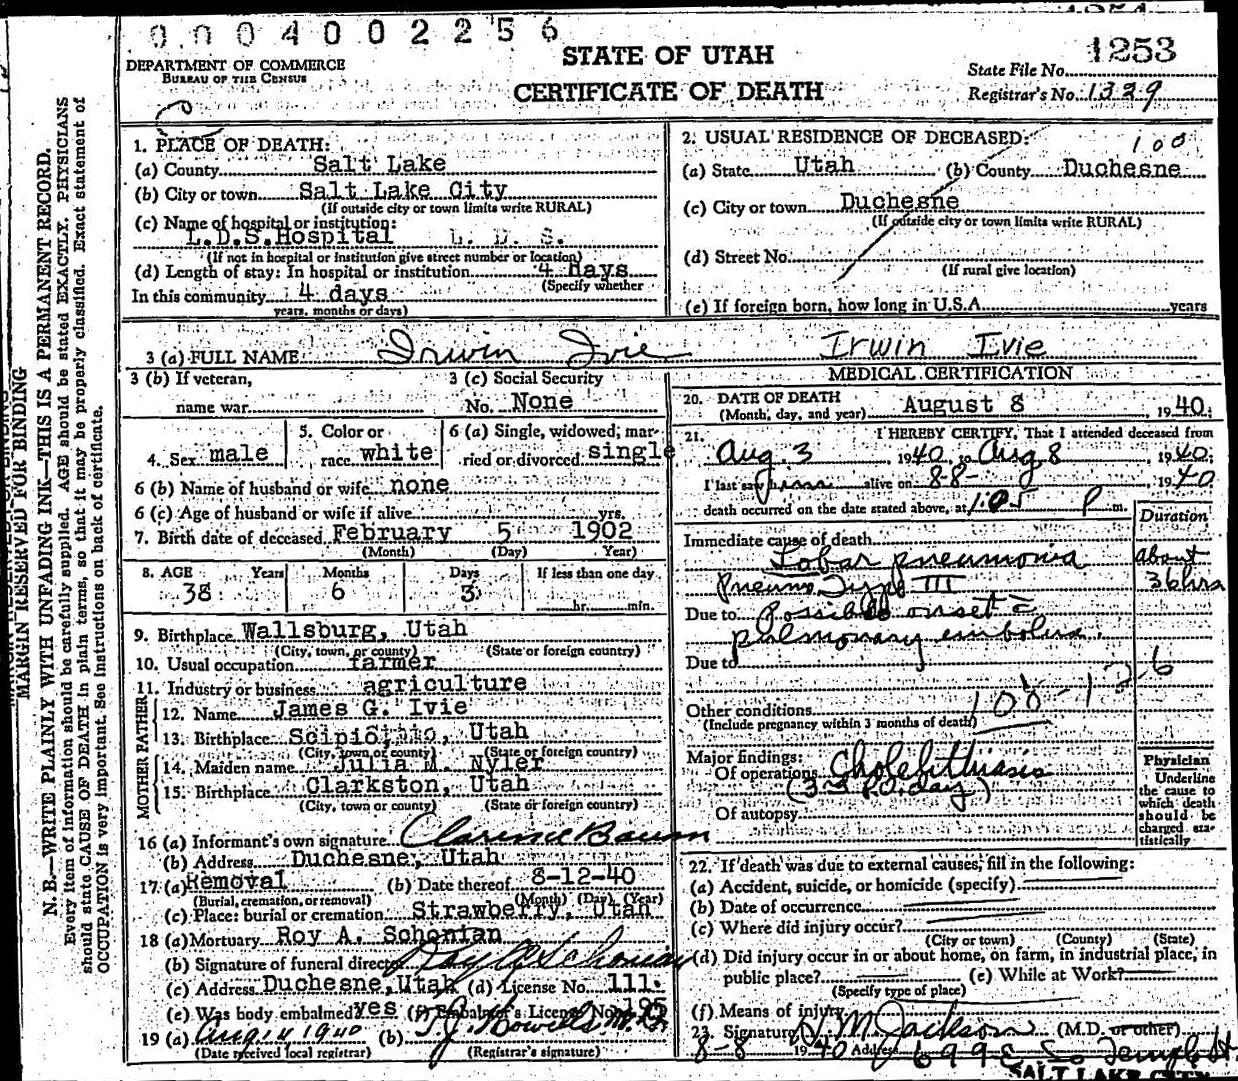 0004002256
DEPARTMENT OF COMMERCE
BUREAU OF THE CENSUS
STATE OF UTAH
CERTIFICATE OF DEATH
1253
State File No.
Registrar's No. 1329
MARGIN RESERVED FOR BINDING
N. B.—WRITE PLAINLY WITH UNFADING INK—THIS IS A PERMANENT RECORD.
Every item of information should be carefully supplied. AGE should be stated EXACTLY. PHYSICIANS
should state CAUSE OF DEATH in plain terms, so that it may be properly classified. Exact statement of
OCCUPATION is very important. See instructions on back of certificate.
1. PLACE OF DEATH:
(a) County Salt Lake
(b) City or town Salt Lake City
(If outside city or town limits write RURAL)
(c) Name of hospital or institution:
L.D.S. Hospital L. D. S.
(If not in hospital or institution give street number or location)
(d) Length of stay: In hospital or institution 4 days
(Specify whether
In this community 4 days
years, months or days)
2. USUAL RESIDENCE OF DECEASED:
100
(a) State Utah (b) County Duchesne
(c) City or town Duchesne
(If outside city or town limits write RURAL)
(d) Street No.
(If rural give location)
(e) If foreign born, how long in U.S.A. years
3 (a) FULL NAME Irwin Ivie Irwin Ivie
3 (b) If veteran,
name war
3 (c) Social Security
No. None
4. Sex male
5. Color or
race white
6 (a) Single, widowed, mar-
ried or divorced single
6 (b) Name of husband or wife none
6 (c) Age of husband or wife if alive yrs.
7. Birth date of deceased February 5 1902
(Month) (Day) Year)
8. AGE Years Months Days If less than one day
38 6 3 hr. min.
9. Birthplace Wallsburg, Utah
(City, town, or county) (State or foreign country)
10. Usual occupation farmer
11. Industry or business agriculture
FATHER
12. Name James G. Ivie
13. Birthplace Scipio, Utah
(City, town or county) (State or foreign country)
MOTHER
14. Maiden name Julia M. Nyler
15. Birthplace Clarkston, Utah
(City, town or county) (State or foreign country)
16 (a) Informant's own signature Clarence Bauman
(b) Address Duchesne, Utah
17. (a) Removal (b) Date thereof 8-12-40
(Burial, cremation, or removal) (Month) (Day) (Year)
(c) Place: burial or cremation Strawberry, Utah
18 (a) Mortuary Roy A. Schonian
(b) Signature of funeral director Roy A Schonian
(c) Address Duchesne, Utah (d) License No. 111.
(e) Was body embalmed yes (f) Embalmer's License No. 195
19 (a) Aug 14 1940 (b) T. J. Howells M.D.
(Date received local registrar) (Registrar's signature)
MEDICAL CERTIFICATION
20. DATE OF DEATH
(Month, day, and year) August 8, 1940;
21. I HEREBY CERTIFY, That I attended deceased from
Aug. 3 1940 to Aug 8 1940;
I last saw him alive on 8-8- 1940
death occurred on the date stated above, at 1:05 P m.
Duration
Immediate cause of death
Lobar pneumonia about
Pneumo Type III 36 hrs
Due to Possible onset c̄
pulmonary embolus.
Due to
108-126
Other conditions
(Include pregnancy within 3 months of death)
Major findings:
Of operations Cholelithiasis
(3rd P.O. day)
Of autopsy
Physician
Underline
the cause to
which death
should be
charged sta-
tistically
22. If death was due to external causes, fill in the following:
(a) Accident, suicide, or homicide (specify)
(b) Date of occurrence
(c) Where did injury occur?
(City or town) (County) (State)
(d) Did injury occur in or about home, on farm, in industrial place, in
public place? (e) While at Work?
(Specify type of place)
(f) Means of injury
23. Signature M Jackson (M.D. or other)
8-8 1940 Address 699 E So Temple St.
SALT LAKE CITY